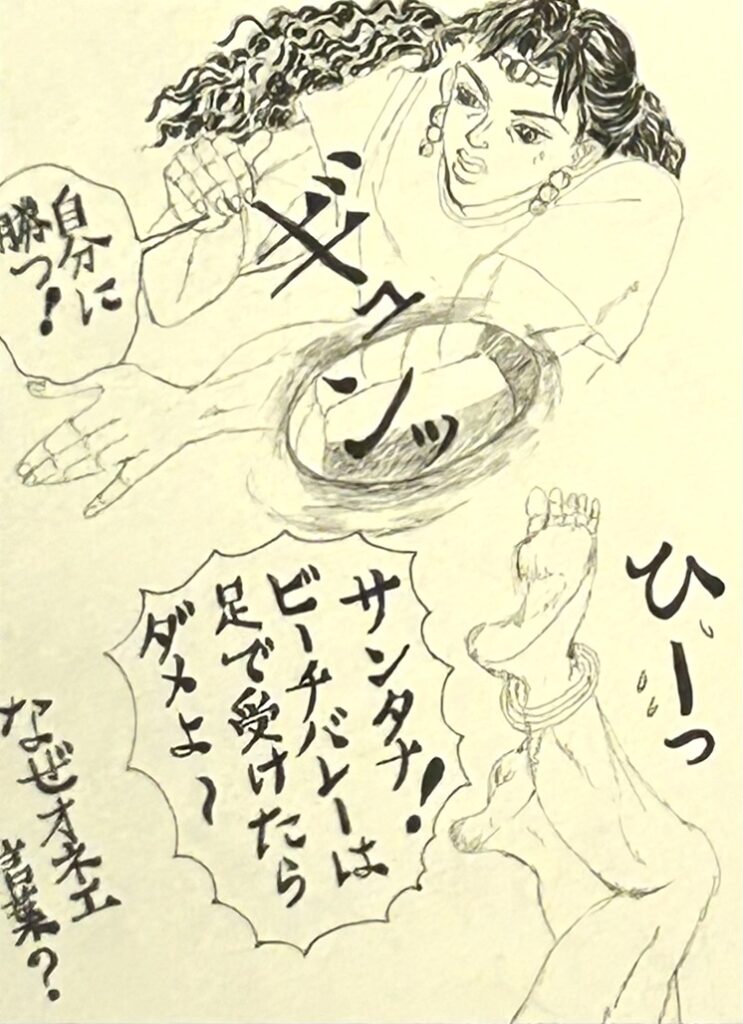 自分に
勝つ!
ギュンッ
ひーっ
サンタナ!
ビーチバレーは
足で受けたら
ダメよ〜
なぜオネエ
言葉?